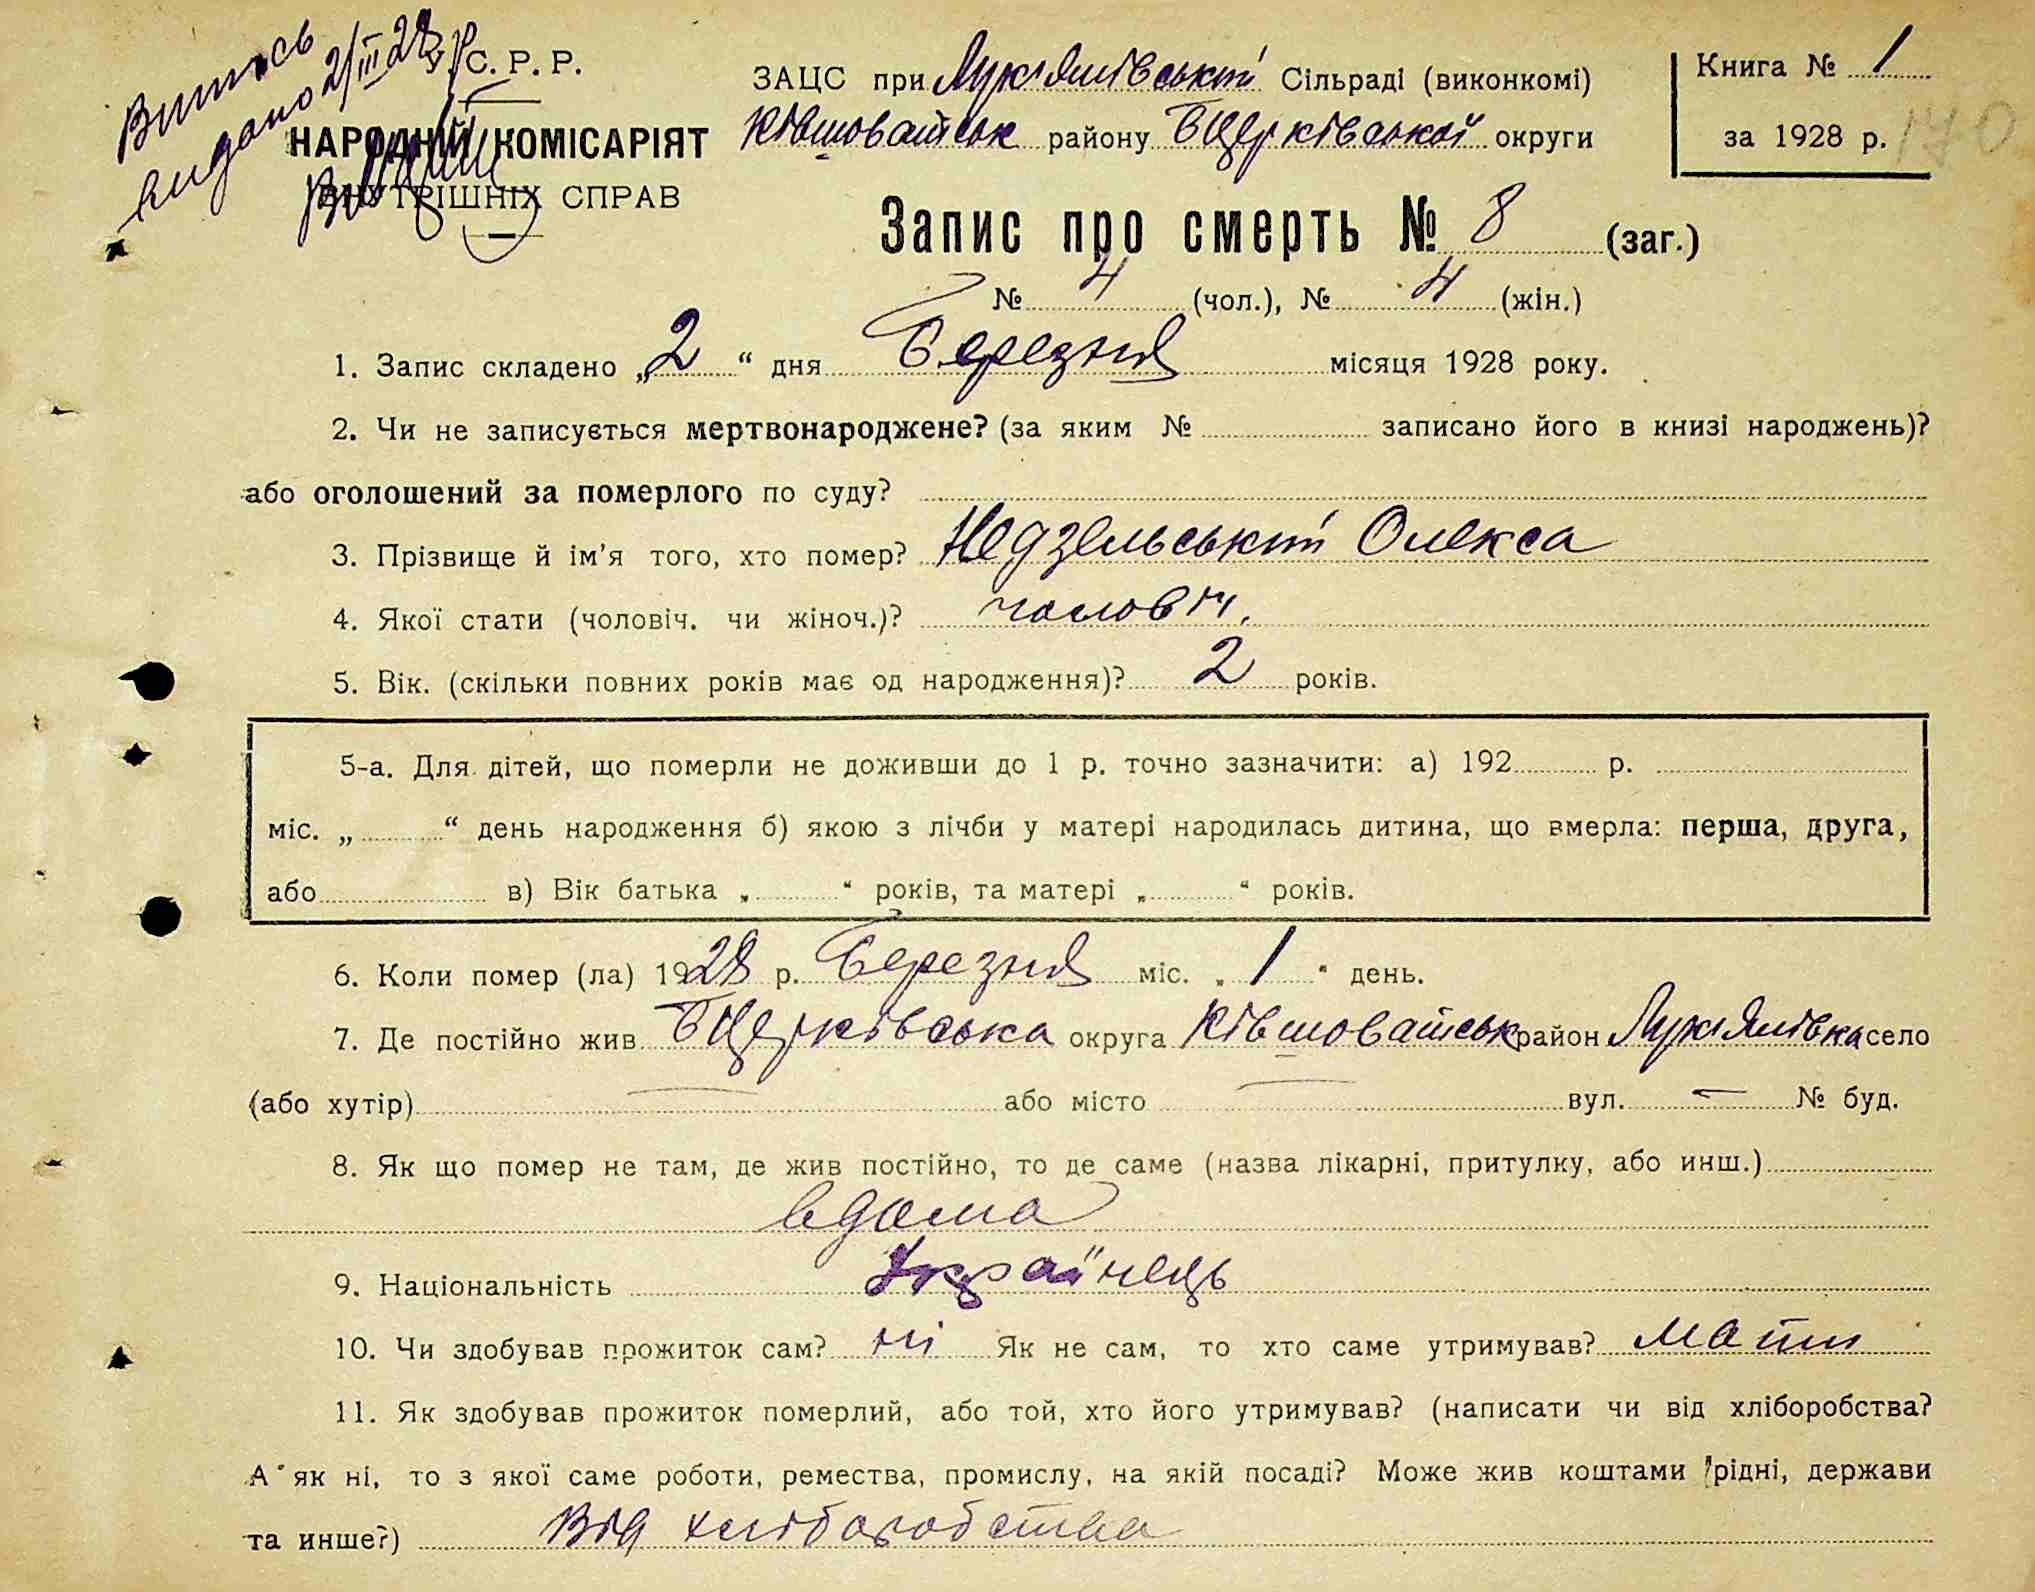 Витись
видано 2/III 28 р.
У. С. Р. Р.
НАРОДНІЙ КОМІСАРІЯТ
ВНУТРІШНІХ СПРАВ
ЗАЦС при Лукіянівській Сільраді (виконкомі)
Ківшоватськ району БЦерківської округи
Книга № 1
за 1928 р. 170
Запис про смерть № 8 (заг.)
№ 4 (чол.), № 4 (жін.)
1. Запис складено „2“ дня Березня місяця 1928 року.
2. Чи не записується мертвонароджене? (за яким № записано його в книзі народжень)?
або оголошений за померлого по суду?
3. Прізвище й ім'я того, хто помер? Недзельський Олекса
4. Якої стати (чоловіч. чи жіноч.)? чоловіч.
5. Вік. (скільки повних років має од народження)? 2 років.
5-а. Для дітей, що померли не доживши до 1 р. точно зазначити: а) 192 р.
міс. „ “ день народження б) якою з лічби у матері народилась дитина, що вмерла: перша, друга,
або в) Вік батька „ “ років, та матері „ “ років.
6. Коли помер (ла) 1928 р. Березня міс. „1“ день.
7. Де постійно жив БЦерківська округа Ківшоватськ район Лукіянівка село
(або хутір) — або місто — вул. — № буд.
8. Як що помер не там, де жив постійно, то де саме (назва лікарні, притулку, або инш.)
вдома
9. Національність Українець
10. Чи здобував прожиток сам? ні Як не сам, то хто саме утримував? мати
11. Як здобував прожиток померлий, або той, хто його утримував? (написати чи від хліборобства?
А як ні, то з якої саме роботи, ремества, промислу, на якій посаді? Може жив коштами рідні, держави
та инше?) Від хліборобства